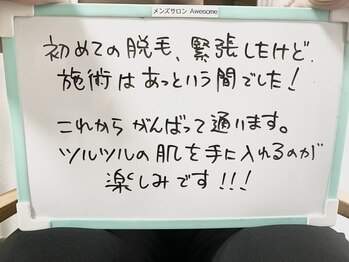 メンズサロン Awesome
初めての脱毛、緊張したけど、
施術はあっという間でした!
これからがんばって通います。
ツルツルの肌を手に入れるのが
楽しみです!!!